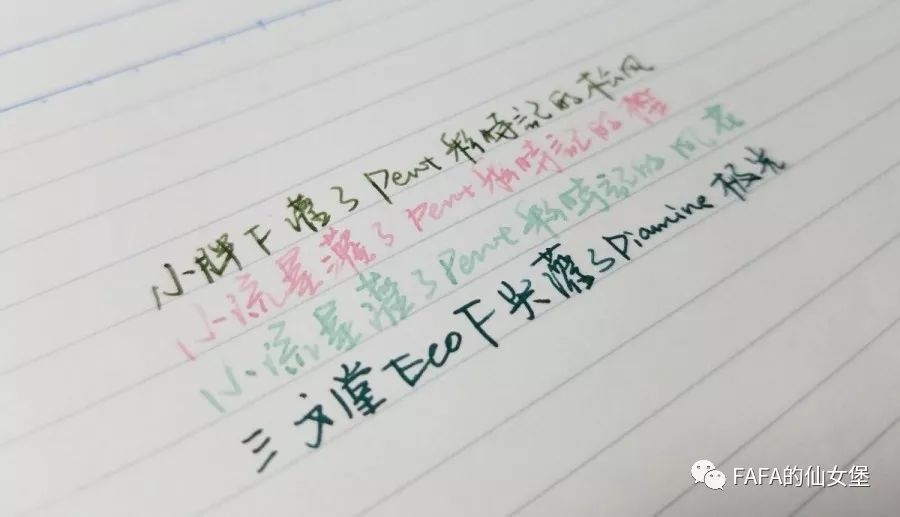 小胖F灌了Pent彩時記的松风
小流星灌了Pent彩時記的樱
小流星灌了Pent彩時記的风花
三文堂Eco F尖灌了Diamine极光
FAFA的仙女堡